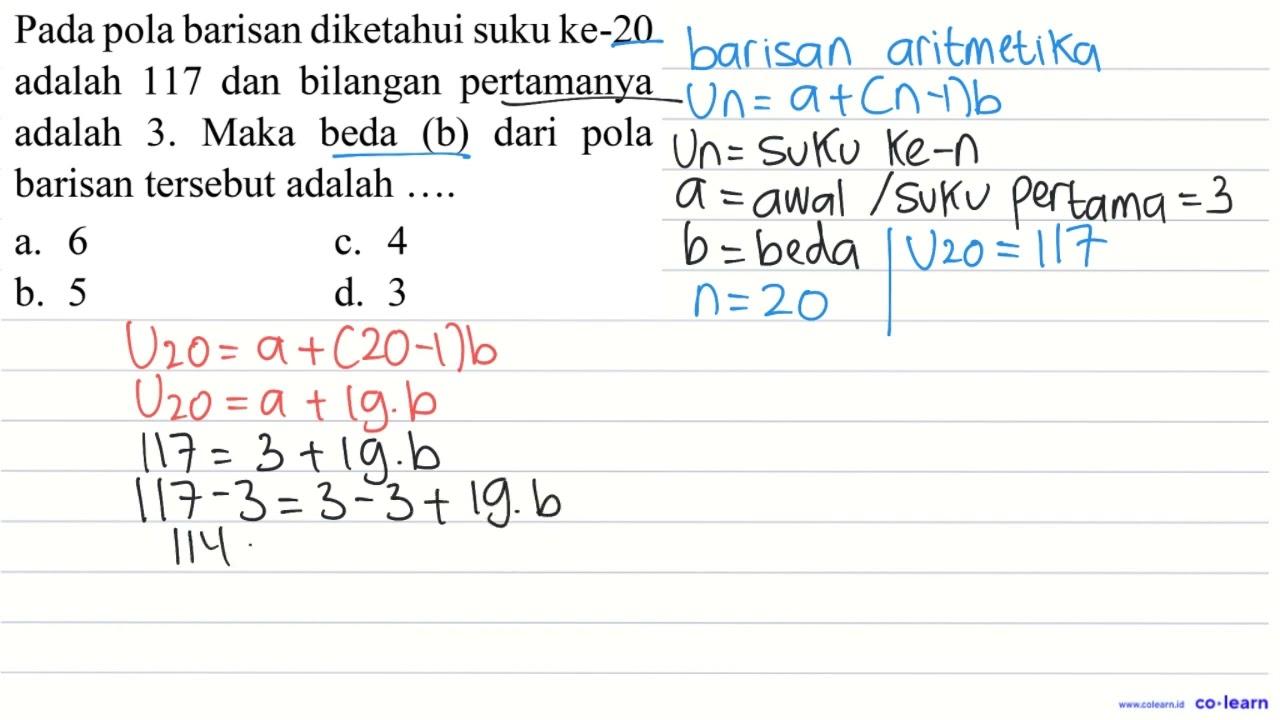 Pada pola barisan diketahui suku ke-20
adalah 117 dan bilangan pertamanya
adalah 3. Maka beda (b) dari pola
barisan tersebut adalah ....
a. 6 c. 4
b. 5 d. 3
barisan aritmetika
Un = a + (n-1)b
Un = suku ke-n
a = awal / suku pertama = 3
b = beda | U20 = 117
n = 20
U20 = a + (20-1)b
U20 = a + 19.b
117 = 3 + 19.b
117 - 3 = 3 - 3 + 19.b
114
www.colearn.id co·learn